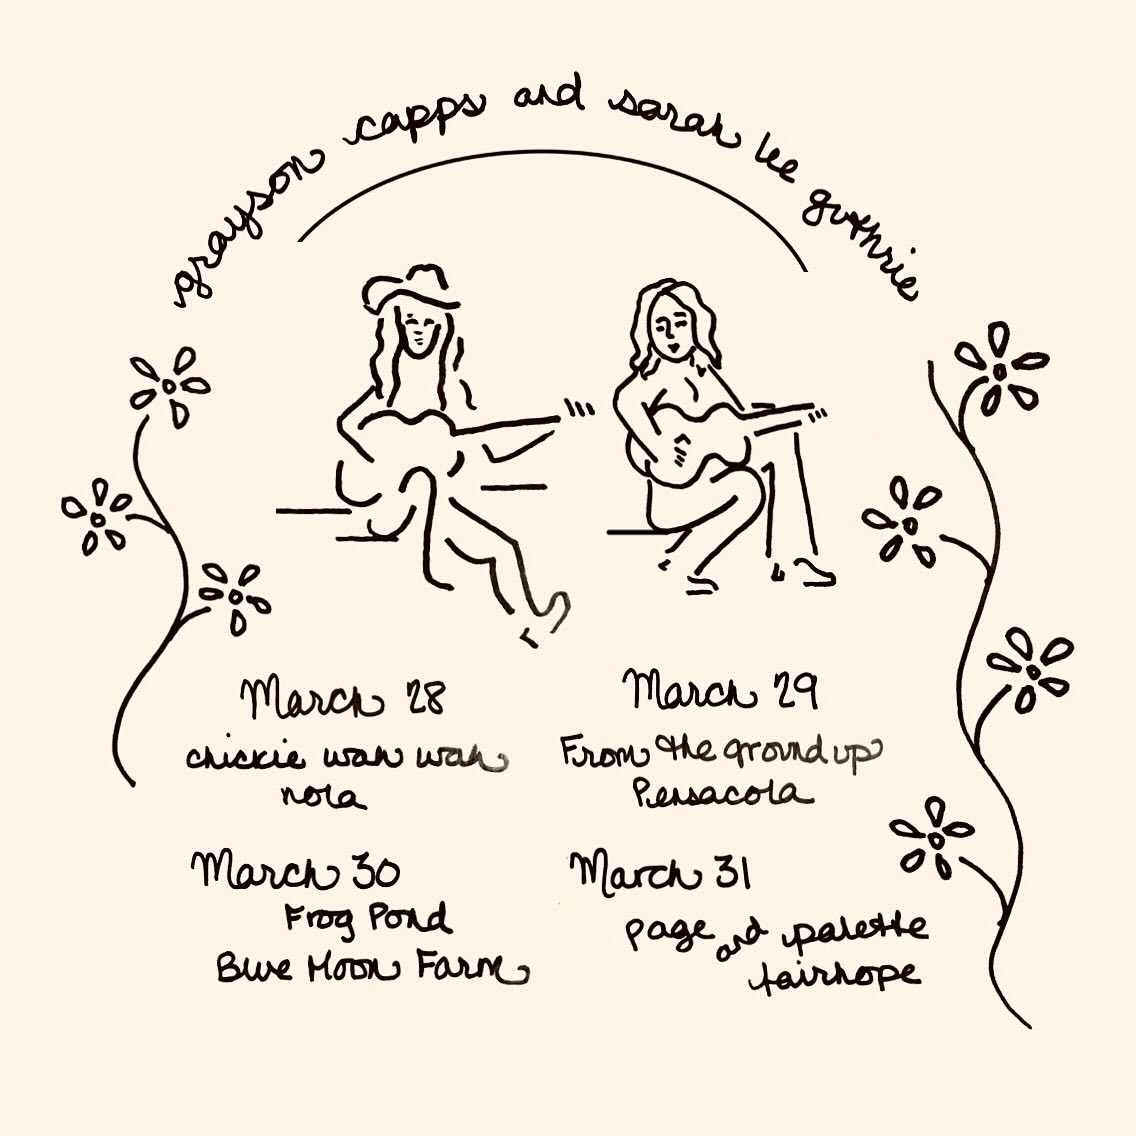 grayson capps and sarah lee guthrie
March 28
chickie wah wah
nola
March 29
From the ground up
Pensacola
March 30
Frog Pond
Blue Moon Farm
March 31
page and palette
fairhope